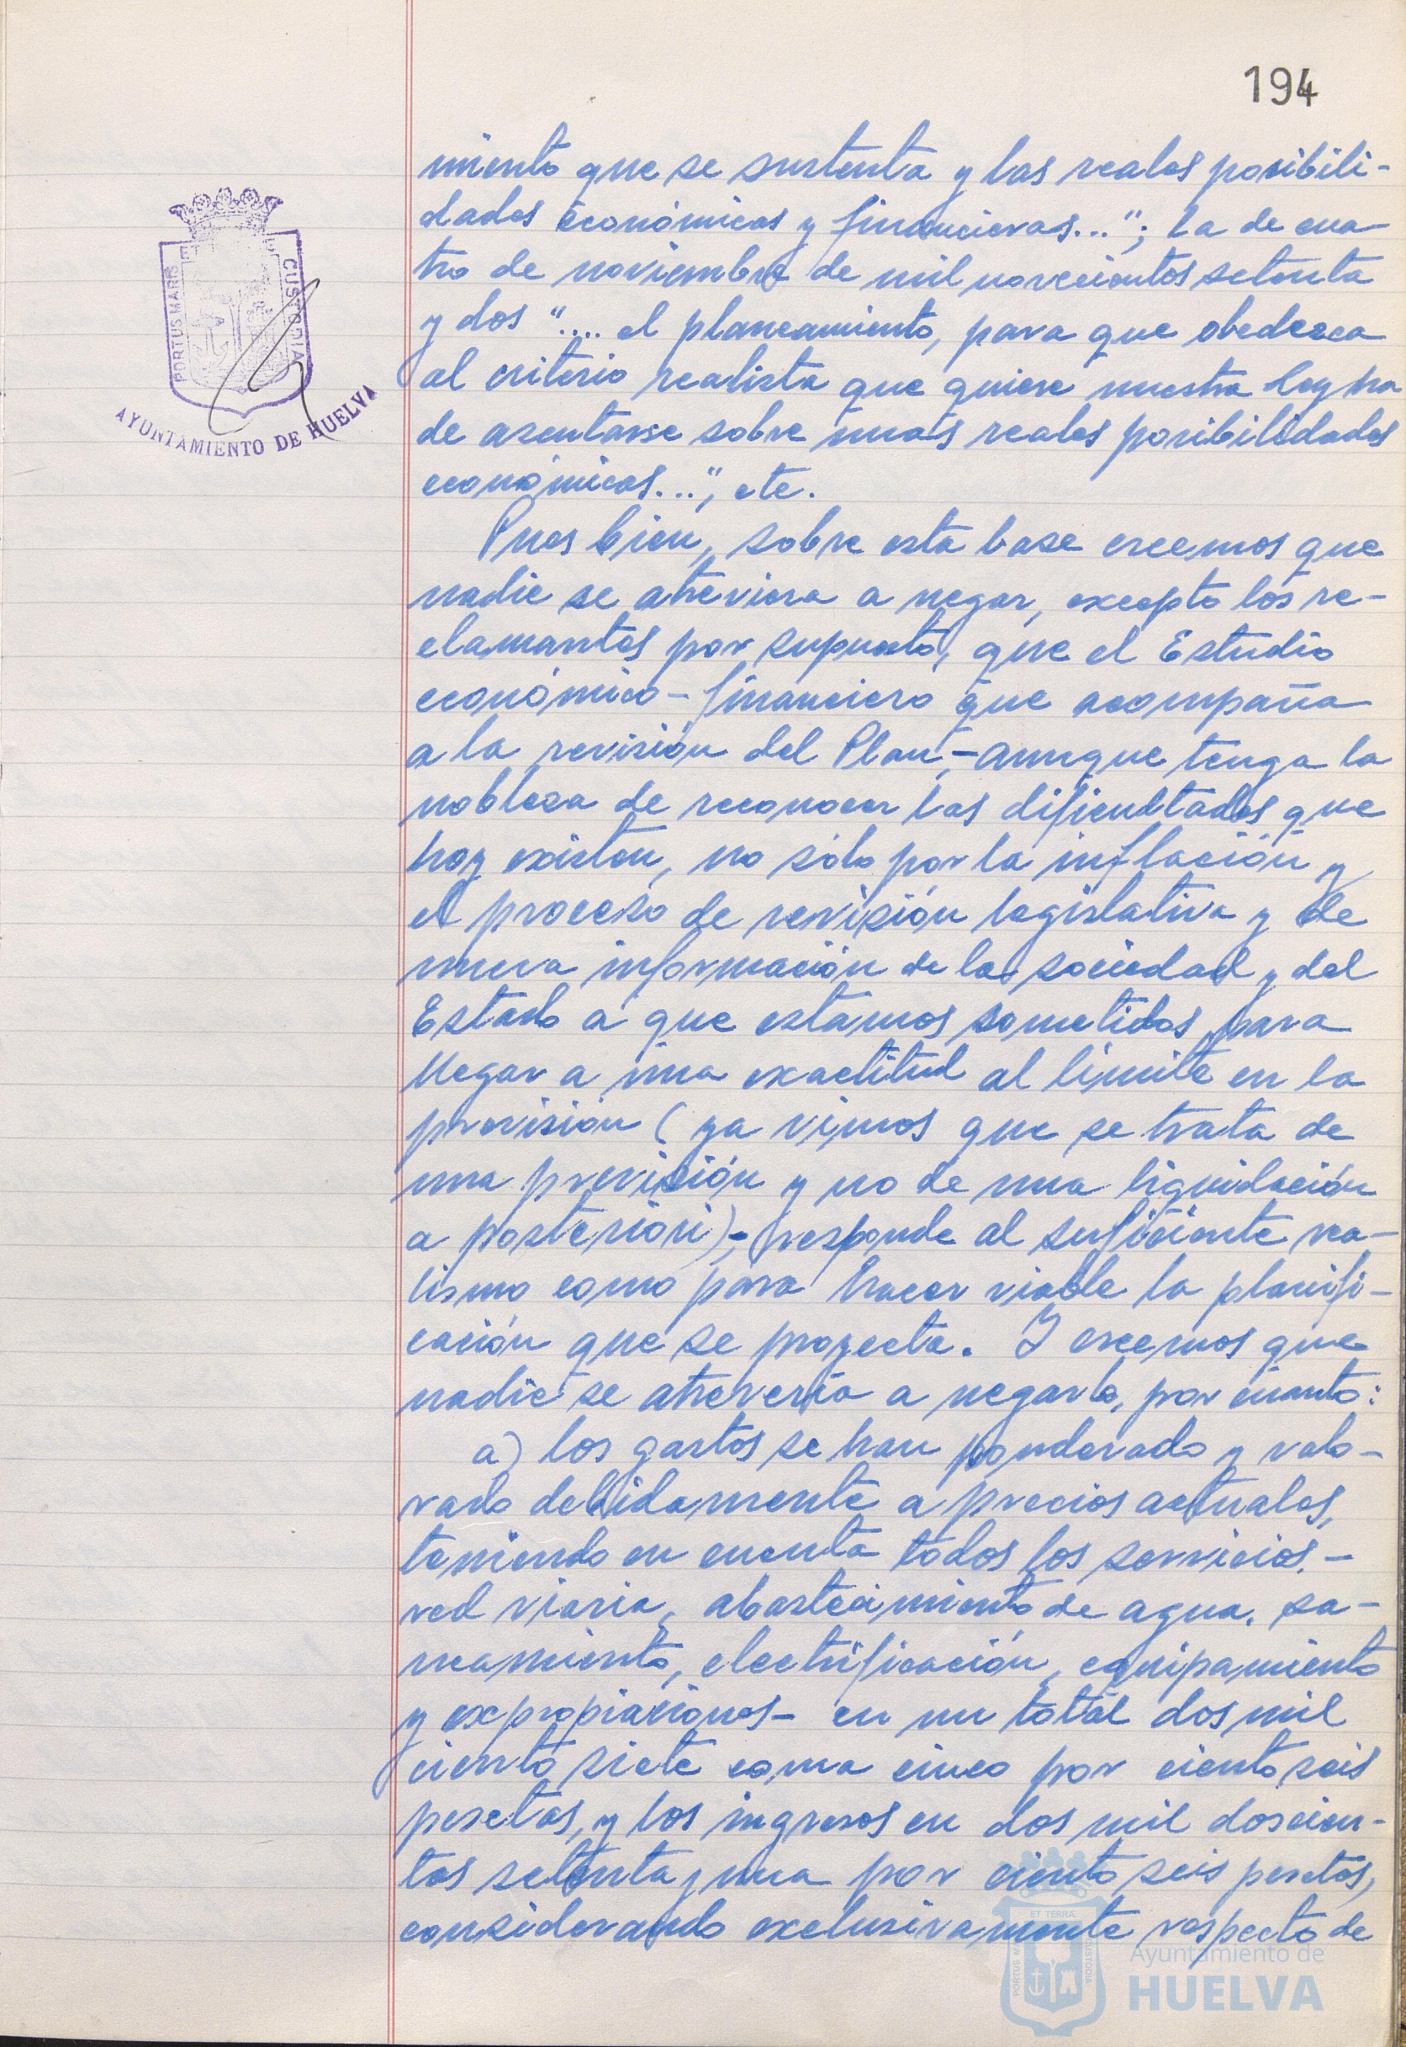 194
PORTUS MARIS
CUSTODIA
AYUNTAMIENTO DE HUELVA
miento que se sustenta y las reales posibili-
dades económicas y financieras..."; la de cua-
tro de noviembre de mil novecientos setenta
y dos ".... el planeamiento, para que obedezca
al criterio realista que quiere nuestra ley ha
de asentarse sobre unas reales posibilidades
económicas...", etc.
Pues bien, sobre esta base creemos que
nadie se atreviera a negar, excepto los re-
clamantes por supuesto, que el Estudio
económico-financiero que acompaña
a la revisión del Plan,-aunque tenga la
nobleza de reconocer las dificultades que
hoy existen, no sólo por la inflación y
el proceso de revisión legislativa y de
nueva información de la sociedad y del
Estado a que estamos sometidos para
llegar a una exactitud al límite en la
previsión (ya vimos que se trata de
una previsión y no de una liquidación
a posteriori)-, responde al suficiente rea-
lismo como para hacer viable la planifi-
cación que se proyecta. Y creemos que
nadie se atrevería a negarlo, por cuanto:
a) los gastos se han ponderado y valo-
rado debidamente a precios actuales,
teniendo en cuenta todos los servicios.-
red viaria, abastecimiento de agua, sa-
neamiento, electrificación, equipamiento
y expropiaciones- en un total dos mil
ciento siete coma cinco por ciento seis
pesetas, y los ingresos en dos mil doscien-
tas setenta y una por ciento seis pesetas,
considerando exclusivamente respecto de
ET TERRA
CUSTODIA
Ayuntamiento de
HUELVA